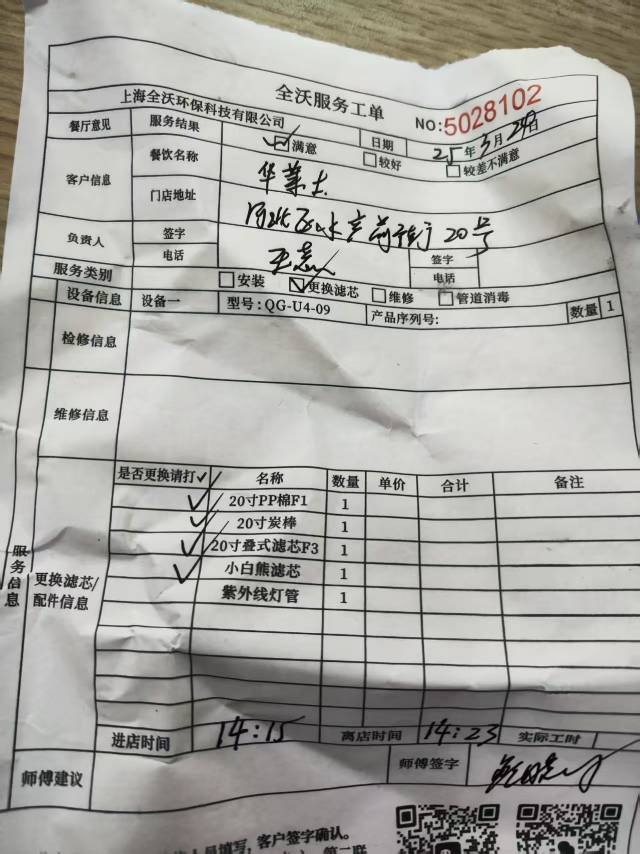 全沃服务工单
上海全沃环保科技有限公司 NO:5028102
餐厅意见 服务结果 ☑满意 □较好 □较差不满意 日期 25年3月29日
客户信息 餐饮名称 华莱士
门店地址 20号
负责人 签字 签字
电话 电话
服务类别 □安装 ☑更换滤芯 □维修 □管道消毒
设备信息 设备一 型号:QG-U4-09 产品序列号: 数量 1
检修信息
维修信息
服务信息
更换滤芯/配件信息
是否更换请打✓ 名称 数量 单价 合计 备注
✓ 20寸PP棉F1 1
✓ 20寸炭棒 1
✓ 20寸叠式滤芯F3 1
✓ 小白熊滤芯 1
紫外线灯管 1
进店时间 14:15 离店时间 14:23 实际工时
师傅建议 师傅签字
人员填写,客户签字确认。
第二联